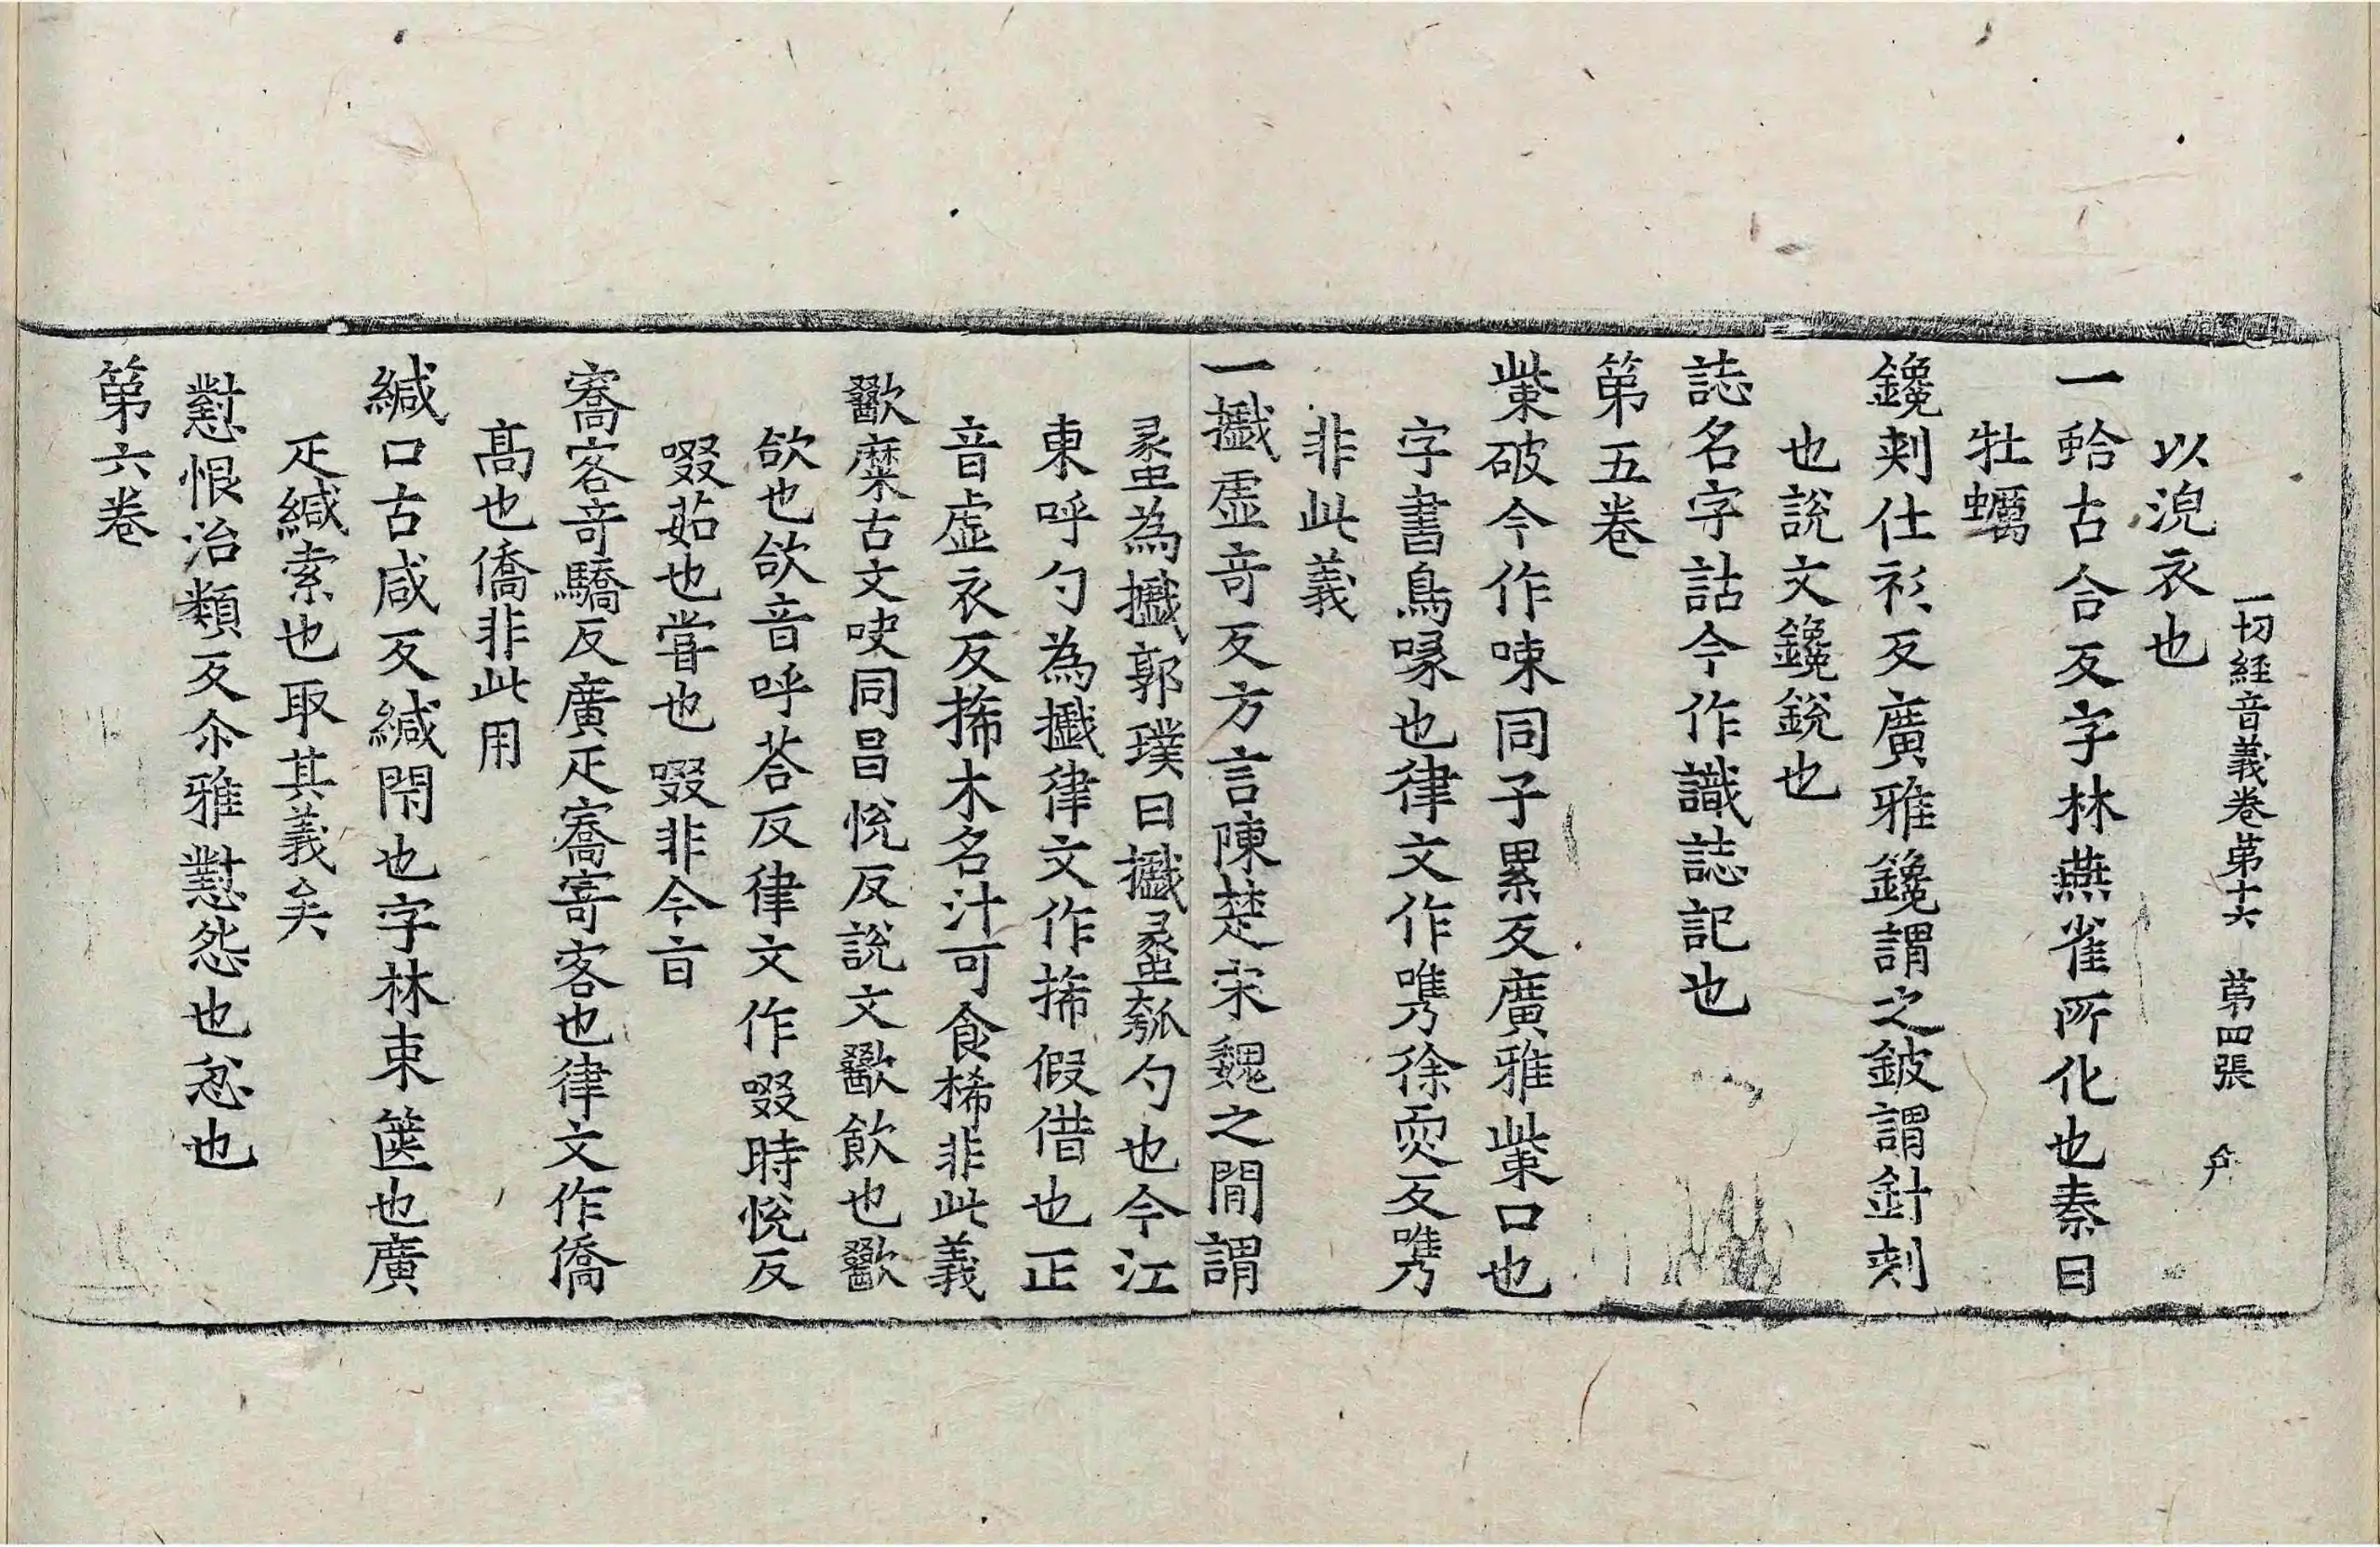 一切経音義卷第十六 苐四張
以浼衣也
一蛤古合反字林燕雀所化也秦曰
牡蠣
鑱刾仕衫反廣雅鑱謂之鈹謂針刾
也說文鑱銳也
誌名字詁今作識誌記也
第五卷
㭰破今作㖩同子累反廣雅㭰口也
字書鳥喙也律文作嚖徐耎反嚖
非此義
一㰕虛竒反方言陳楚宋魏之閒謂
蠡為㰕郭璞曰㰕蠡瓠勺也今江
東呼勺為㰕律文作㧊假借也正
音虛衣反㧊木名汁可食桸非此義
歠糜古文吷同昌悅反說文歠飲也歠
欱也欱音呼荅反律文作啜時悅反
啜茹也甞也啜非今㫖
寯客竒驕反廣疋寯寄客也律文作僑
髙也僑非此用
緘口古咸反緘閇也字林束篋也廣
疋緘索也取其義矣
懟恨治類反尒雅懟怨也忿也
第六卷